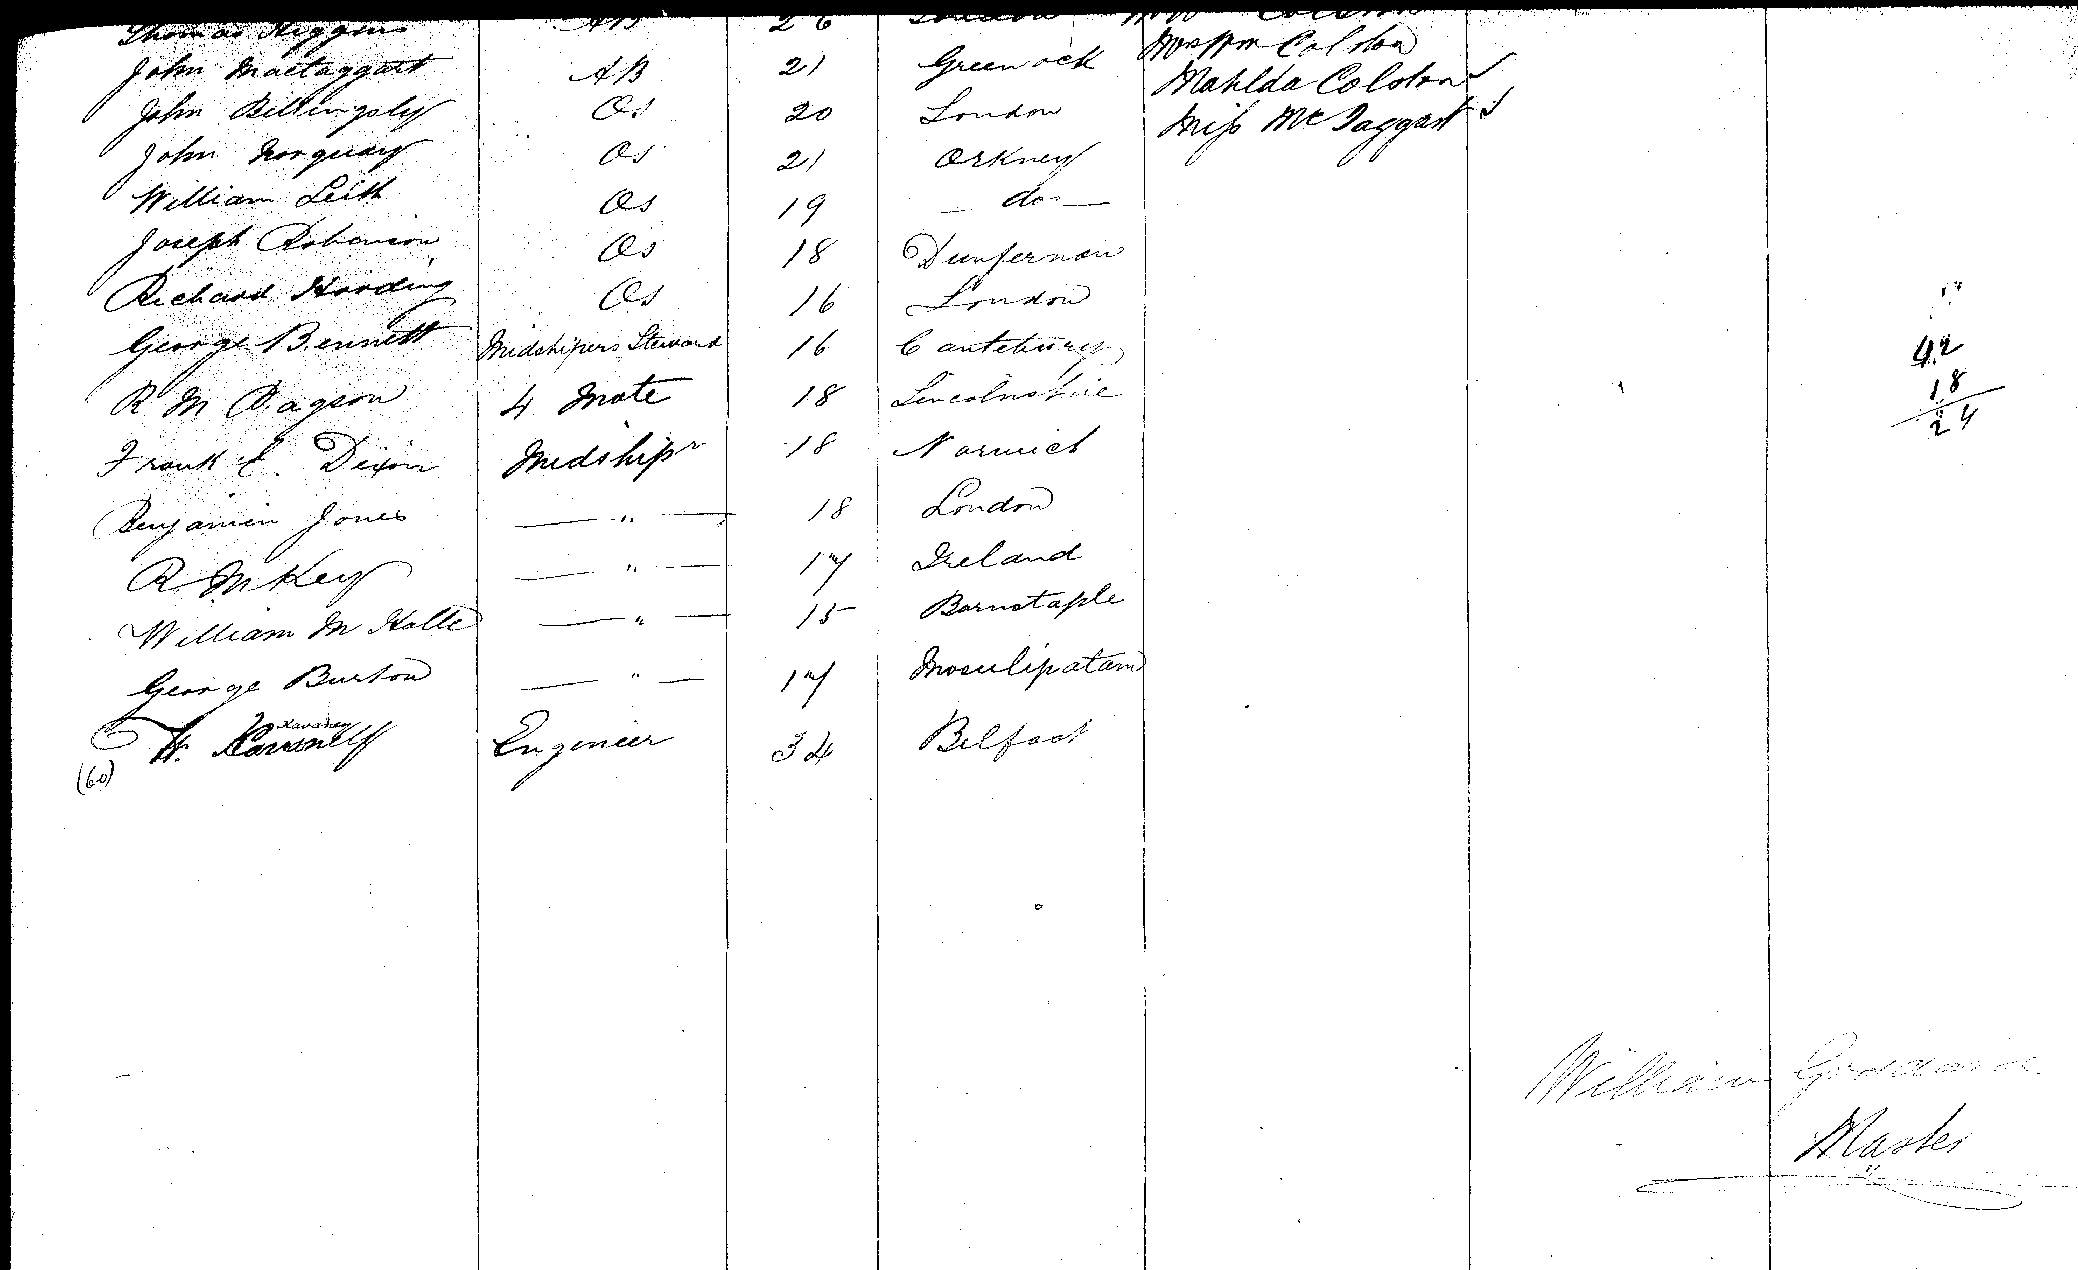 Thomas Higgins AB 26 London
John Mactaggart AB 21 Greenock Colston
John Billingsley Os 20 London Matilda Colston
John Norquay Os 21 Orkney Miss McTaggart
William Leith Os 19 — do —
Joseph Robinson Os 18
Richard Harding Os 16 London
George Bennett Midshipers Steward 16 Cantebury
R M 4 Mate 18 Lincolnshire
Frank E. Dixon Midshipr 18 Norwich
Benjamin Jones — " — 18 London
R McKey — " — 17 Ireland
William M Holle — " — 15 Barnstaple
George Burton — " — 17 Masulipatam
H. Engineer 34 Belfast
(60)
42
18
24
William
Master